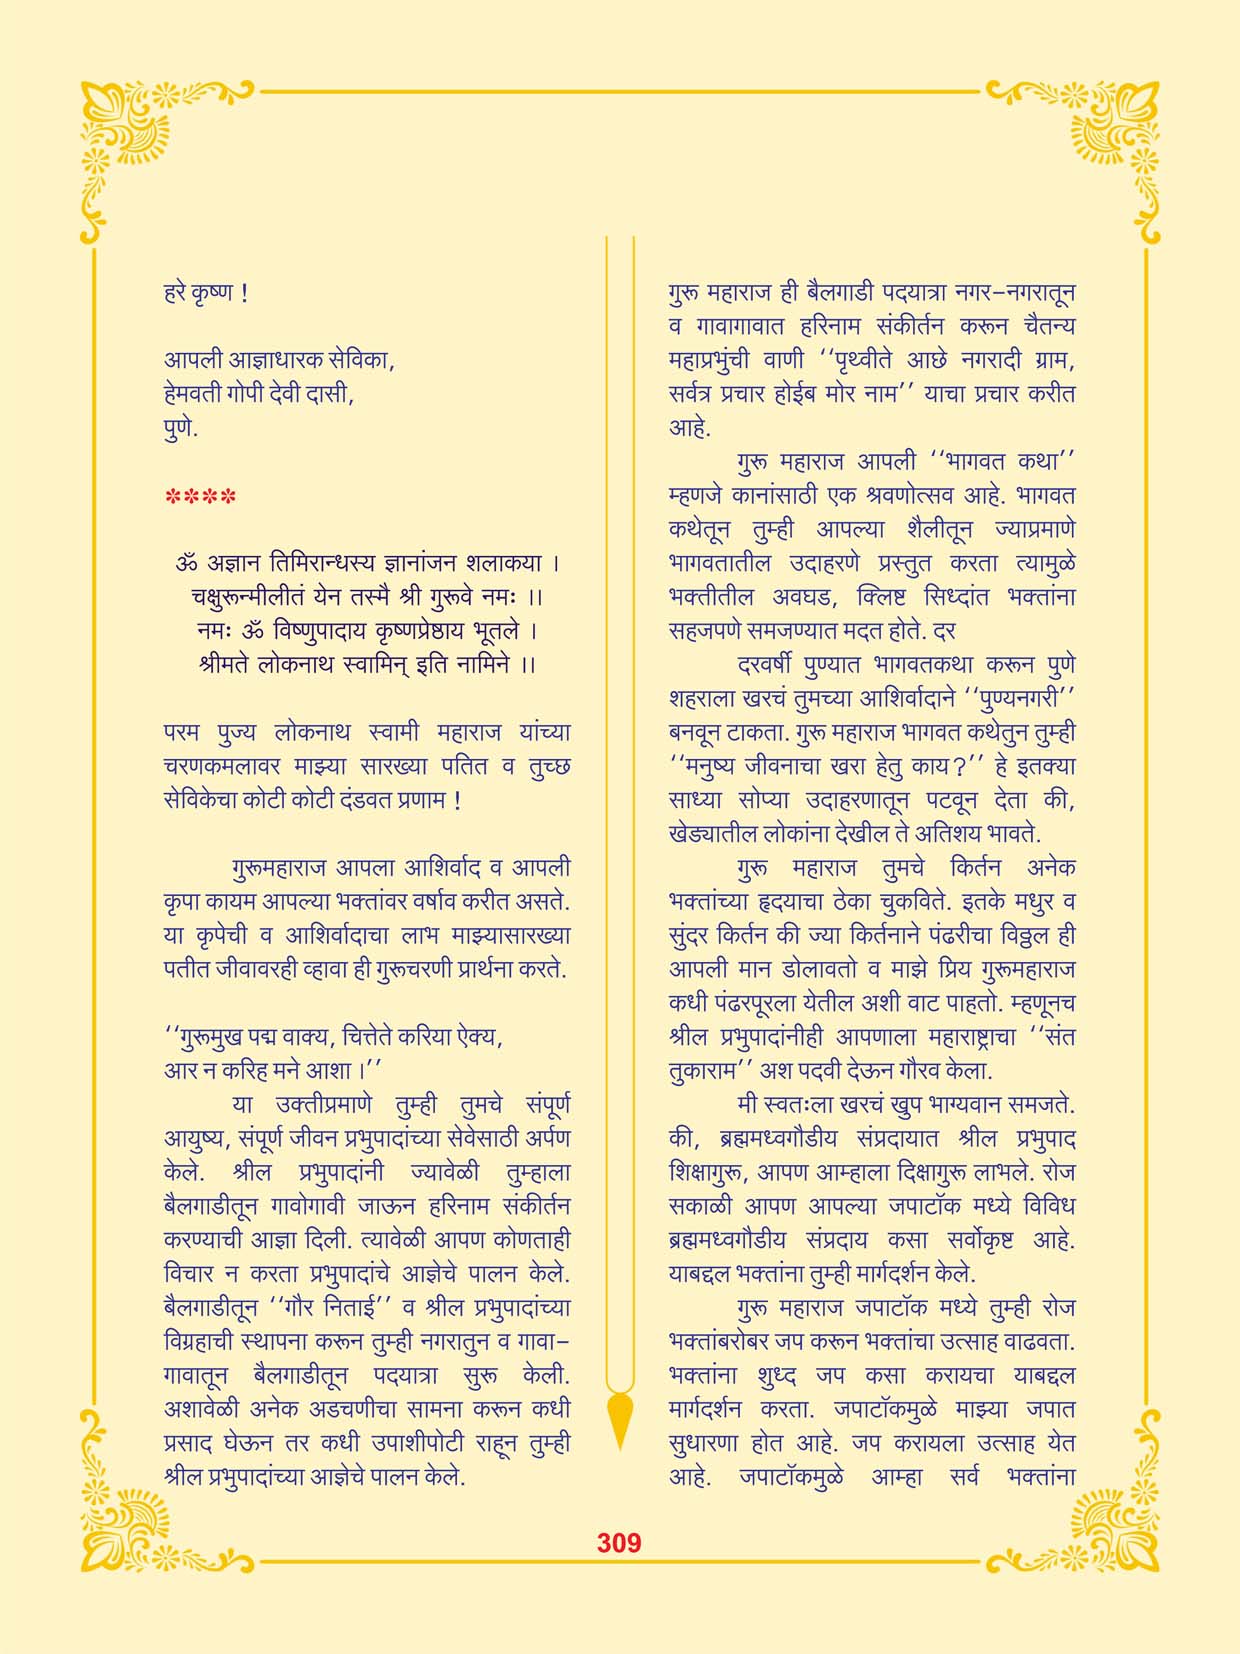 हरे कृष्ण !
आपली आज्ञाधारक सेविका,
हेमवती गोपी देवी दासी,
पुणे.
****
ॐ अज्ञान तिमिरान्धस्य ज्ञानांजन शलाकया ।
चक्षुरून्मीलीतं येन तस्मै श्री गुरूवे नमः ।।
नमः ॐ विष्णुपादाय कृष्णप्रेष्ठाय भूतले ।
श्रीमते लोकनाथ स्वामिन् इति नामिने ।।
परम पुज्य लोकनाथ स्वामी महाराज यांच्या
चरणकमलावर माझ्या सारख्या पतित व तुच्छ
सेविकेचा कोटी कोटी दंडवत प्रणाम !
गुरूमहाराज आपला आशिर्वाद व आपली
कृपा कायम आपल्या भक्तांवर वर्षाव करीत असते.
या कृपेची व आशिर्वादाचा लाभ माझ्यासारख्या
पतीत जीवावरही व्हावा ही गुरूचरणी प्रार्थना करते.
‘‘गुरूमुख पद्म वाक्य, चित्तेते करिया ऐक्य,
आर न करिह मने आशा ।’’
या उक्तीप्रमाणे तुम्ही तुमचे संपूर्ण
आयुष्य, संपूर्ण जीवन प्रभुपादांच्या सेवेसाठी अर्पण
केले. श्रील प्रभुपादांनी ज्यावेळी तुम्हाला
बैलगाडीतून गावोगावी जाऊन हरिनाम संकीर्तन
करण्याची आज्ञा दिली. त्यावेळी आपण कोणताही
विचार न करता प्रभुपादांचे आज्ञेचे पालन केले.
बैलगाडीतून ‘‘गौर निताई’’ व श्रील प्रभुपादांच्या
विग्रहाची स्थापना करून तुम्ही नगरातुन व गावा-
गावातून बैलगाडीतून पदयात्रा सुरू केली.
अशावेळी अनेक अडचणीचा सामना करून कधी
प्रसाद घेऊन तर कधी उपाशीपोटी राहून तुम्ही
श्रील प्रभुपादांच्या आज्ञेचे पालन केले.
गुरू महाराज ही बैलगाडी पदयात्रा नगर-नगरातून
व गावागावात हरिनाम संकीर्तन करून चैतन्य
महाप्रभुंची वाणी ‘‘पृथ्वीते आछे नगरादी ग्राम,
सर्वत्र प्रचार होईब मोर नाम’’ याचा प्रचार करीत
आहे.
गुरू महाराज आपली ‘‘भागवत कथा’’
म्हणजे कानांसाठी एक श्रवणोत्सव आहे. भागवत
कथेतून तुम्ही आपल्या शैलीतून ज्याप्रमाणे
भागवतातील उदाहरणे प्रस्तुत करता त्यामुळे
भक्तीतील अवघड, क्लिष्ट सिध्दांत भक्तांना
सहजपणे समजण्यात मदत होते. दर
दरवर्षी पुण्यात भागवतकथा करून पुणे
शहराला खरचं तुमच्या आशिर्वादाने ‘‘पुण्यनगरी’’
बनवून टाकता. गुरू महाराज भागवत कथेतुन तुम्ही
‘‘मनुष्य जीवनाचा खरा हेतु काय?’’ हे इतक्या
साध्या सोप्या उदाहरणातून पटवून देता की,
खेड्यातील लोकांना देखील ते अतिशय भावते.
गुरू महाराज तुमचे किर्तन अनेक
भक्तांच्या हृदयाचा ठेका चुकविते. इतके मधुर व
सुंदर किर्तन की ज्या किर्तनाने पंढरीचा विठ्ठल ही
आपली मान डोलावतो व माझे प्रिय गुरूमहाराज
कधी पंढरपूरला येतील अशी वाट पाहतो. म्हणूनच
श्रील प्रभुपादांनीही आपणाला महाराष्ट्राचा ‘‘संत
तुकाराम’’ अश पदवी देऊन गौरव केला.
मी स्वतःला खरचं खुप भाग्यवान समजते.
की, ब्रह्ममध्वगौडीय संप्रदायात श्रील प्रभुपाद
शिक्षागुरू, आपण आम्हाला दिक्षागुरू लाभले. रोज
सकाळी आपण आपल्या जपाटॉक मध्ये विविध
ब्रह्ममध्वगौडीय संप्रदाय कसा सर्वोकृष्ट आहे.
याबद्दल भक्तांना तुम्ही मार्गदर्शन केले.
गुरू महाराज जपाटॉक मध्ये तुम्ही रोज
भक्तांबरोबर जप करून भक्तांचा उत्साह वाढवता.
भक्तांना शुध्द जप कसा करायचा याबद्दल
मार्गदर्शन करता. जपाटॉकमुळे माझ्या जपात
सुधारणा होत आहे. जप करायला उत्साह येत
आहे. जपाटॉकमुळे आम्हा सर्व भक्तांना
309